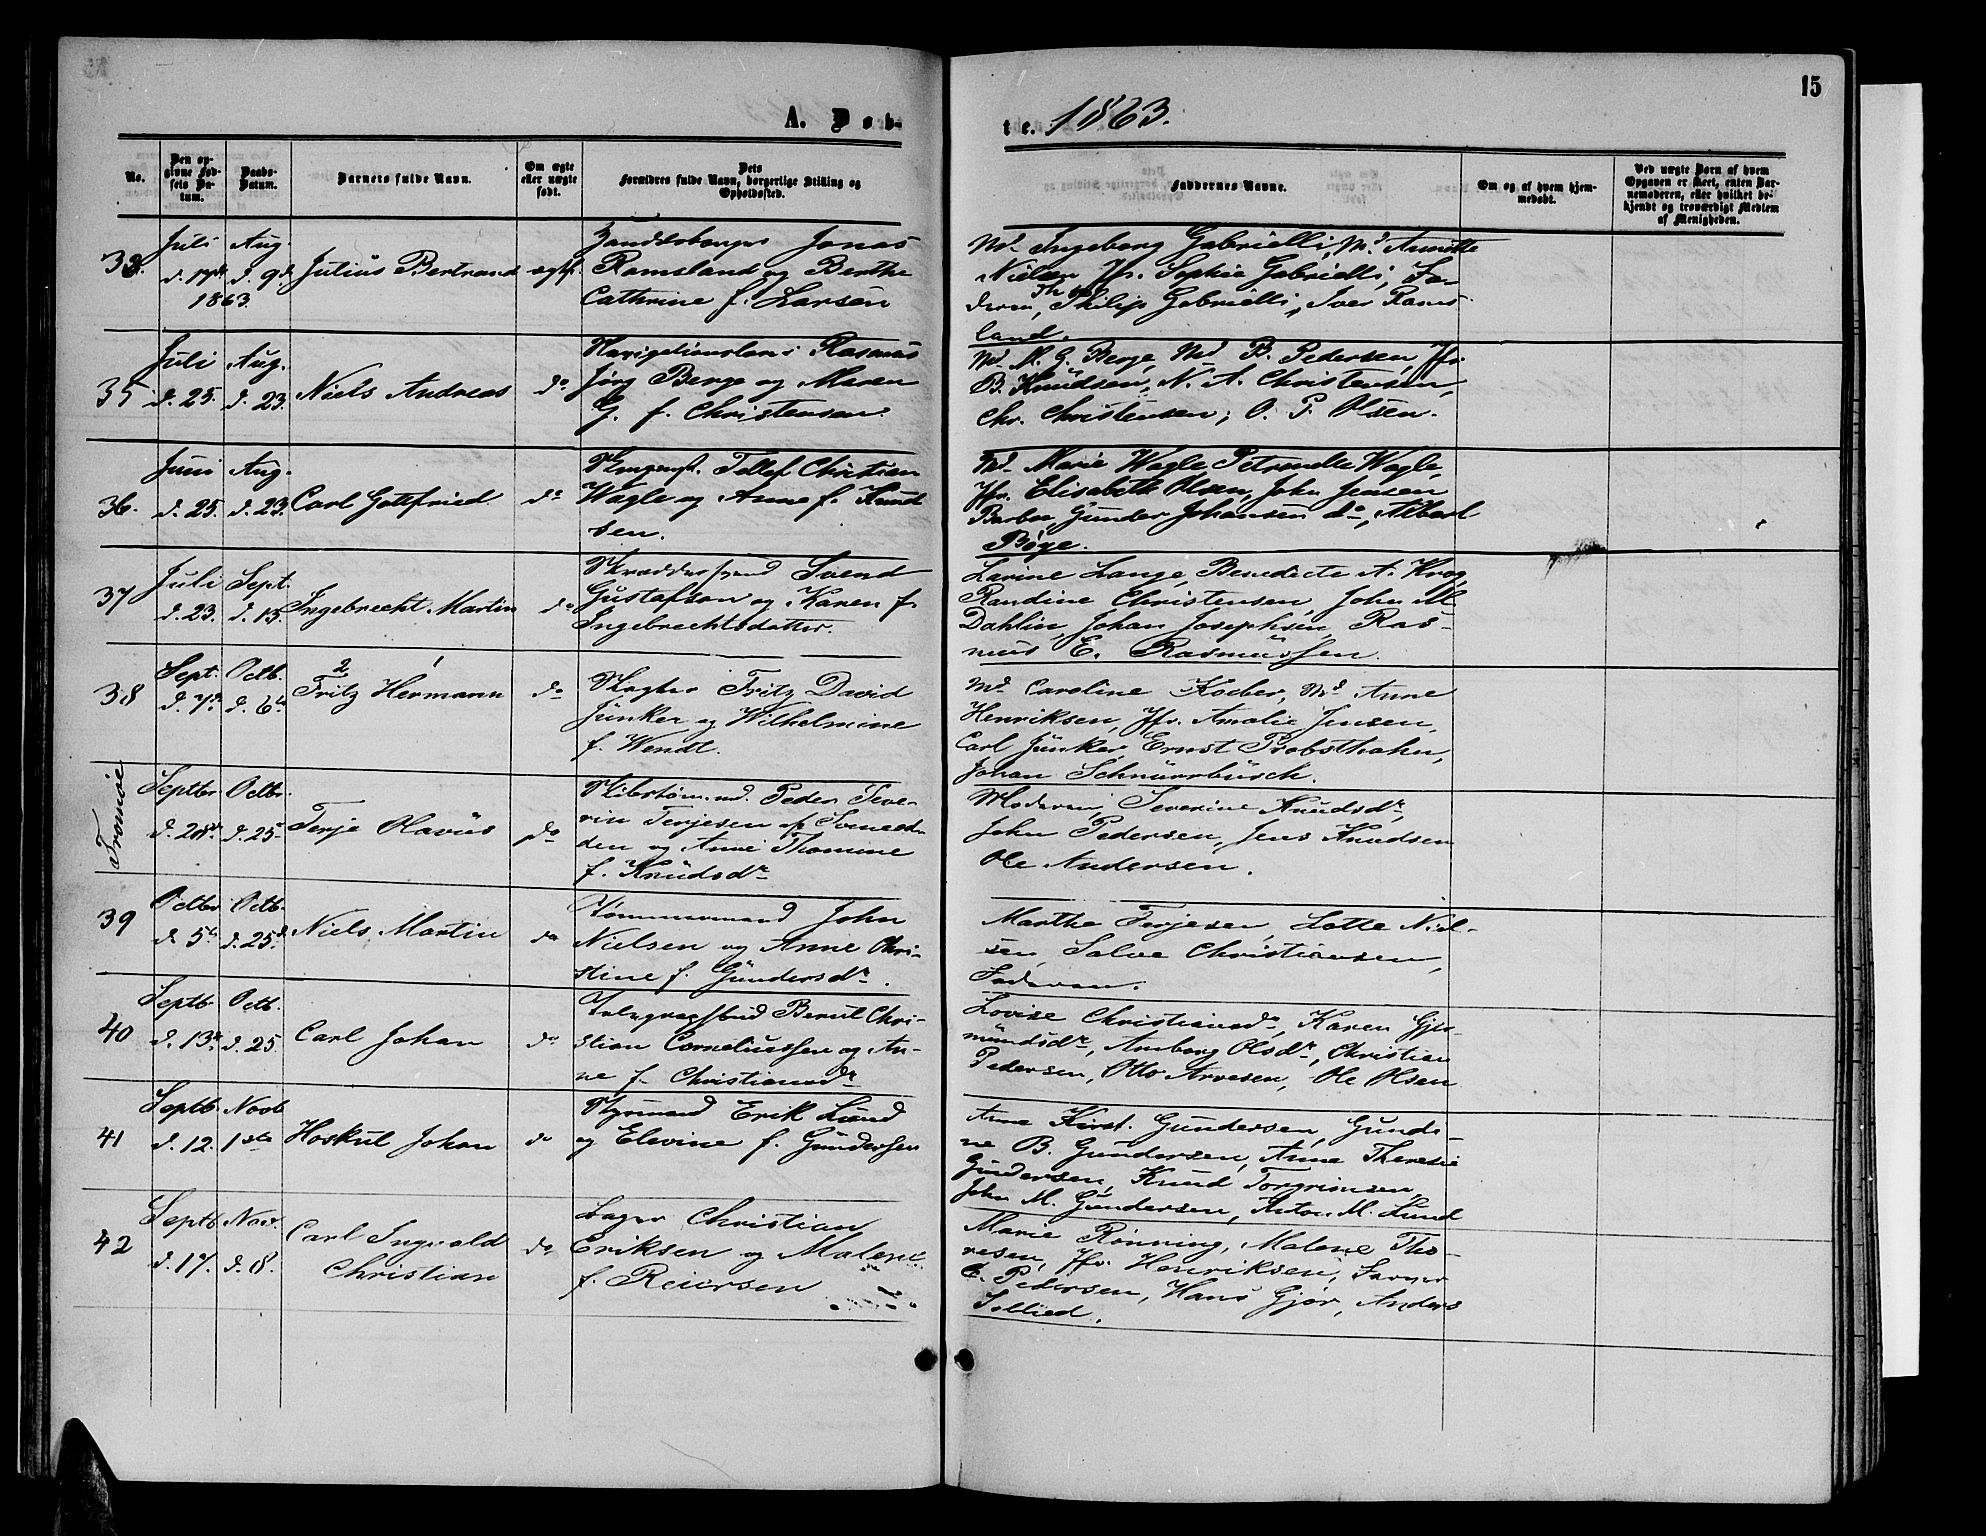 15
A. Døb-
te. 1863.
No.
Den op-
givne Fød-
sels Da-
tum.
Daabs-
Datum.
Barnets fulde Navn.
Om ægte
eller uægte
født.
Dets
Forældres fulde Navn, borgerlige Stilling og
Opholdssted.
Faddernes Navne.
Om og af hvem hjem-
medøbt.
Ved uægte Børn af hvem
Opgaven er skeet, enten Bar-
nemoderen, eller hvilket be-
kjendt og troværdigt Medlem
af Menigheden.
Juli
d. 17de
1863.
Aug.
d. 9de
Julius Bertrand
ægte
Jonas
Ramsland og Berthe
Cathrine f. Larsen
Md. Ingeborg Gabrielli, Md. Annette
Nielsen Jfr. Sophie Gabrielli, Fa-
deren, Philip Gabrielli, Iver Rams-
land.
35
Juli
d. 25.
Aug.
d. 23.
Niels Andreas
do
Navigationslærer Rasmus
Jørg Berge og Maren
G. f. Christensen.
Md. M. G. Berge, Md. B. Pedersen, Jfr.
B. Knudsen, N. A. Christensen,
Chr. Christensen, O. P. Olsen.
36.
Juni
d. 25.
Aug.
d. 23.
Carl Gottfried
do
Tellef Christian
Wagle og Anne f. Knud
sen.
Md. Marie Wagle Petronelle Wagle,
Jfr. Elisabeth Olsen, John Jensen
Barboe Gunder Johansen do, Albert
Bøge.
37
Juli
d. 23.
Sept.
d. 13.
Ingebrecht Martin
do
Skræddersvend Svend
Gustafson og Karen f.
Ingebrechtsdatter.
Larine Lange, Benedicte A. Krog,
Randine Christensen, John M.
Dahlin, Johan Josephsen, Ras-
mus E. Rasmussen.
38
Sept.
d. 7de
Octb.
d. 6te
2 1
Fritz Hermann
do
Slagter Fritz David
Junker og Wilhelmine
f. Wendt.
Md. Caroline Kocber, Md. Anne
Henriksen, Jfr. Amalie Jensen,
Carl Junker, Ernst Probsthahn,
Johan Schnurrbusch.
Tromøe
Septbr
Octbr.
d. 25
Terje Olavus
do
Skibstømmd. Peder Seve-
rin Terjesen af
den og Anne Thomine
f. Knudsdr
Moderen, Severine Knudsdr,
John Pedersen, Jens Knudsen
Ole Andersen.
39
Octbr
d 5te
Octb.
d. 25d
Niels Martin
do
Tømmermand John
Nielsen og Anne Chri-
stine f. Gundersdr.
Marthe Terjesen, Lotte Niel-
sen, Salve Christiansen,
Faderen.
40
Septb
d. 13de
Octb.
d. 25
Carl Johan
do
Telegraphbud Berul Chri-
stian Corneliussen og An-
ne f. Christiansdr
Lovise Christiansdr, Karen Gjer-
mundsdr, Amborg Olsdr, Christian
Pedersen, Otto Arvesen, Ole Olsen
41
Septb.
d. 12.
Novb
1ste
Hoskul Johan
do
Styrmand Erik Lund
og Elevine f. Gundersen
Anne Kirst. Gundersen, Gundi-
ne B. Gundersen, Anne Theresie
Gundersen, Knud Torgrimsen,
John M. Gundersen, Anton M. Lund
42
Septb
d. 17.
Nov.
d. 8.
Carl Ingvald
Christian
do
Bager Christian
Eriksen og Malene
f. Reiersen
Marie Rønning, Malene Tho-
resen, Jfr. Henriksen, Farver
C. Pedersen, Hans Gjør, Anders
Sollied.